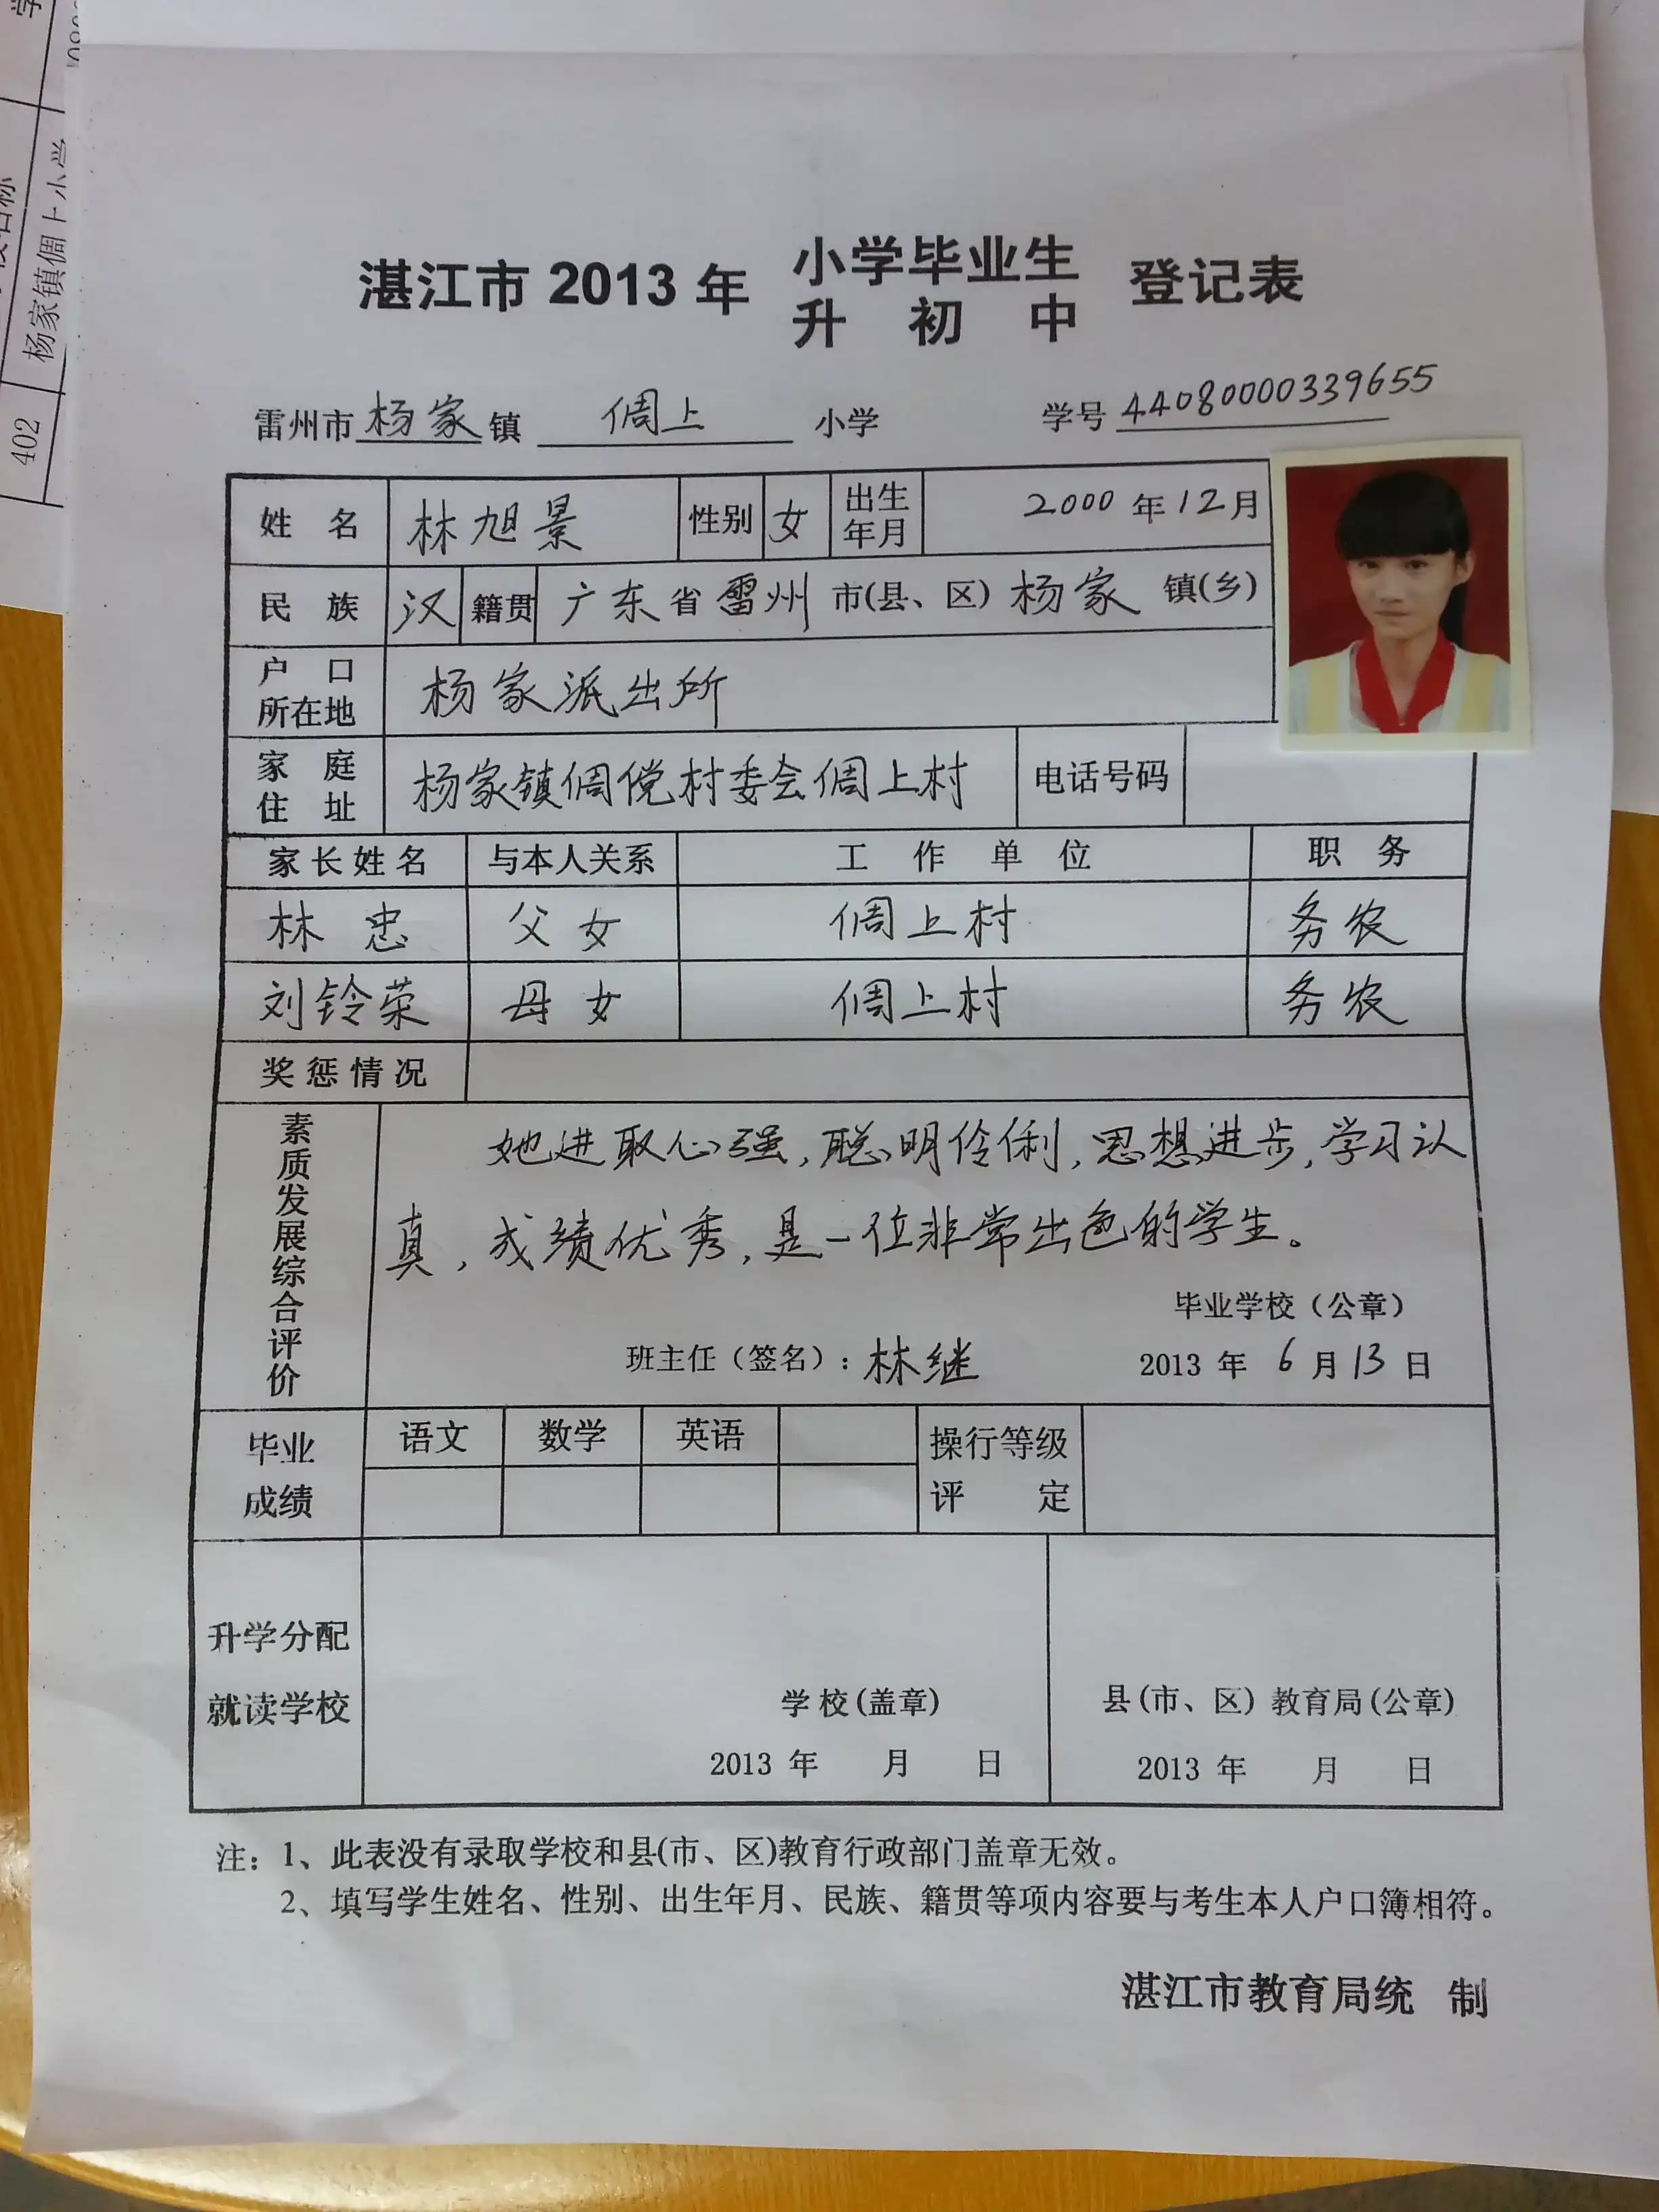 湛江市 2013 年 小学毕业生 登记表
升 初 中
雷州市 杨家 镇 倜上 小学 学号 44080000339655
姓 名 林旭景 性别 女 出生年月 2000 年 12 月
民 族 汉 籍贯 广东 省 雷州 市(县、区) 杨家 镇(乡)
户 口 所在地 杨家派出所
家 庭 住 址 杨家镇倜傥村委会倜上村 电话号码
家长姓名 与本人关系 工 作 单 位 职 务
林忠 父女 倜上村 务农
刘铃荣 母女 倜上村 务农
奖惩情况
素质发展综合评价
她进取心强,聪明伶俐,思想进步,学习认
真,成绩优秀,是一位非常出色的学生。
毕业学校(公章)
班主任(签名):林继 2013 年 6 月 13 日
毕业成绩 语文 数学 英语 操行等级评 定
升学分配
就读学校
学校(盖章) 县(市、区)教育局(公章)
2013 年 月 日 2013 年 月 日
注:1、此表没有录取学校和县(市、区)教育行政部门盖章无效。
2、填写学生姓名、性别、出生年月、民族、籍贯等项内容要与考生本人户口簿相符。
湛江市教育局统 制
402
杨家镇倜上小学